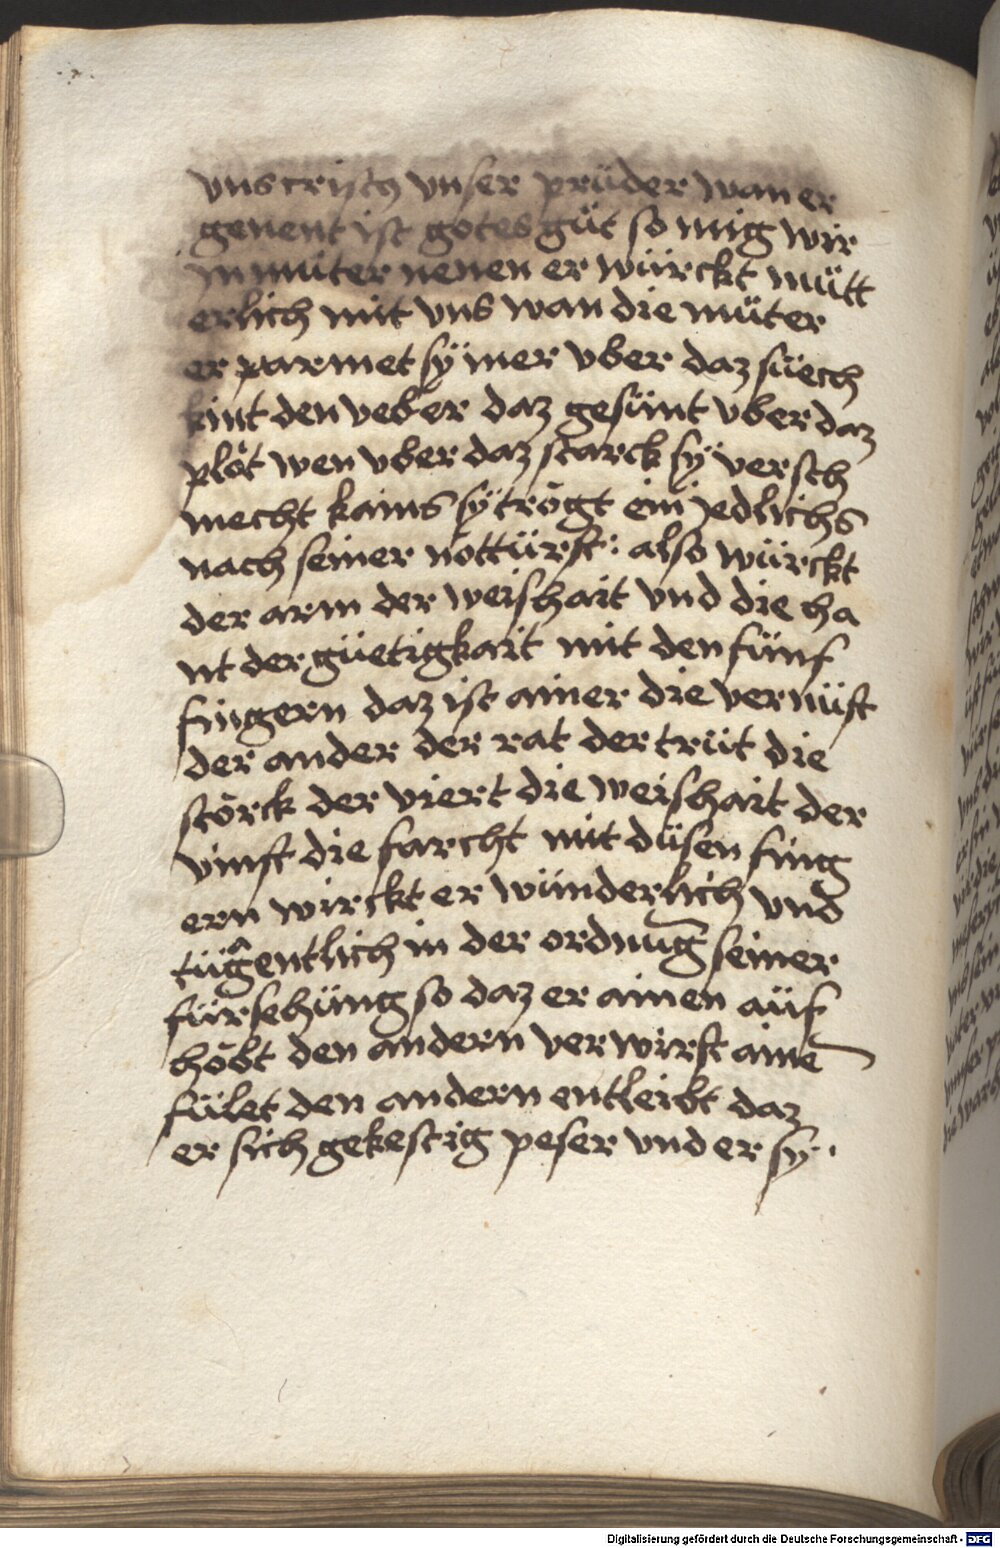 vns crist vnser prüder wan er
genent ist gotes güt so mig wir
in müter nenen er würckt mütt
erlich mit vns wan die müter
er parmet sÿ mer vber daz süech
kint den veber daz gesünt vber daz
plöt wen vber daz starck sÿ versch
mecht kains sÿ trögt ein jedlichs
nach seiner nottürft: also würckt
der arm der weishait vnd die ha
nt der güetigkait mit den fünf
fingern daz ist ainer die vernüft
der ander der rat der trüt die
störck der viert die weishait der
vinft die farcht mit düsen fing
ern wirckt er wünderlich vnd
tügentlich in der ordnug̅ seiner
fürsehüng so daz er ainen aüf
höbt den andern verwirft aine̅
fület den andern entleibt daz
er sich gekestig peser vnd er sÿ.
Digitalisierung gefördert durch die Deutsche Forschungsgemeinschaft - DFG